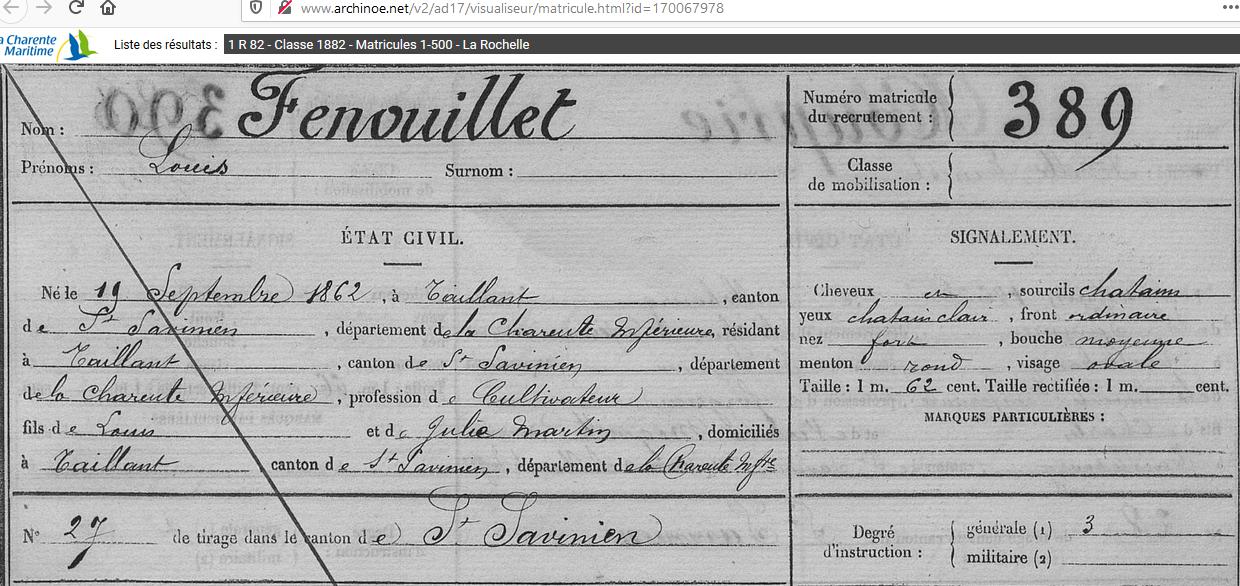 www.archinoe.net/v2/ad17/visualiseur/matricule.html?id=170067978
a Charente
Maritime
Liste des résultats : 1 R 82 - Classe 1882 - Matricules 1-500 - La Rochelle
Nom : Fenouillet
Prénoms : Louis Surnom :
Numéro matricule
du recrutement : 389
Classe
de mobilisation :
ÉTAT CIVIL.
Né le 19 Septembre 1862, à Taillant, canton
de St Savinien, département de la Charente Inférieure, résidant
à Taillant, canton de St Savinien, département
de la Charente Inférieure, profession de Cultivateur
fils de Louis et de Julie Martin, domiciliés
à Taillant, canton de St Savinien, département de la Charente Infre
N° 27 de tirage dans le canton de St Savinien
SIGNALEMENT.
Cheveux et, sourcils chatain
yeux chatain clair, front ordinaire
nez fort, bouche moyenne
menton rond, visage ovale
Taille : 1 m. 62 cent. Taille rectifiée : 1 m. cent.
MARQUES PARTICULIÈRES :
Degré
d'instruction :
générale (1) 3
militaire (2)